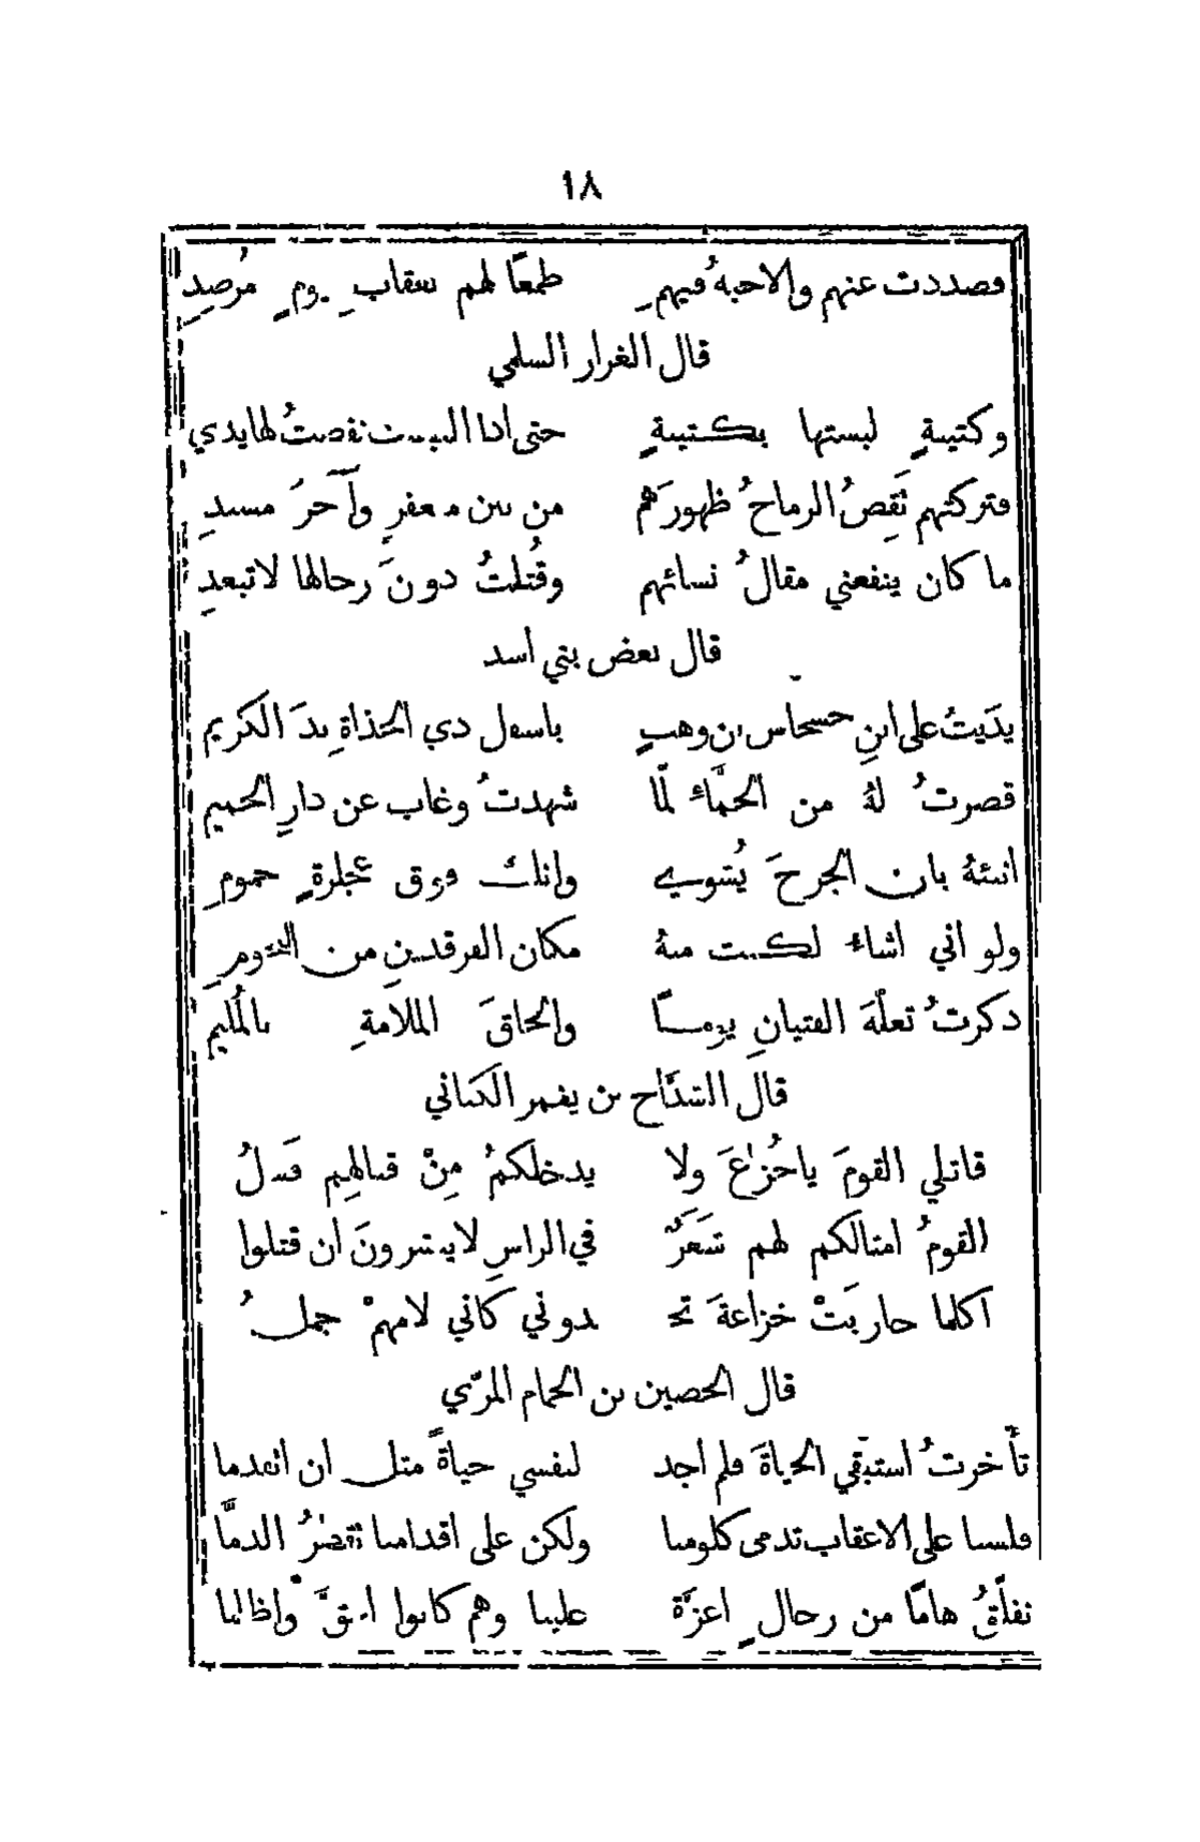 ١٨
فصددت عنهم والاحبةُ فيهمِ طمعًا لهم بعقابِ يومٍ مُرصِدِ
قال الغرار السلمي
وكتيبةٍ لبستها بكتيبةٍ حتى اذا التبست نفضتُ لها يدي
فتركتهم تَقِصُ الرماحُ ظهورَهم من بين منعفرٍ وآخرَ مسندِ
ما كان ينفعني مقالُ نسائهم وقُتلتُ دونَ رجالها لا تبعدِ
قال بعض بني اسد
يدَيتُ على ابنِ حسحاس بن وهبٍ باسفل ذي الجذاةِ يدَ الكريم
قصرتُ لهُ من الحمَّاء لمَّا شهدتُ وغاب عن دارِ الحميمِ
انبئهُ بان الجرحَ يُشوي وانك فوق عجلزةٍ جمومِ
ولو اني اشاء لكنت منهُ مكان الفرقدينِ من النجومِ
ذكرتُ تعلَّةَ الفتيانِ يومًا والحاقَ الملامةِ بالمُليمِ
قال الشدَّاح بن يعمر الكناني
قاتلي القومَ يا خُزاعَ ولا يدخلكمُ مِنْ قتالهِم فَشلُ
القومُ امثالكم لهم شَعَرٌ في الراسِ لا ينشرونَ ان قتلوا
اكلما حاربَتْ خزاعةَ تحـ ـدوني كاني لامهمْ جملُ
قال الحصين بن الحمام المرّي
تأَخرتُ استبقي الحياةَ فلم اجد لنفسي حياةً مثل ان اتقدما
فلسنا على الاعقاب تدمى كلومنا ولكن على اقدامنا تقطرُ الدمَّا
نفلّقُ هامًا من رجالٍ اعزَّة علينا وهم كانوا اعقَّ واظلما